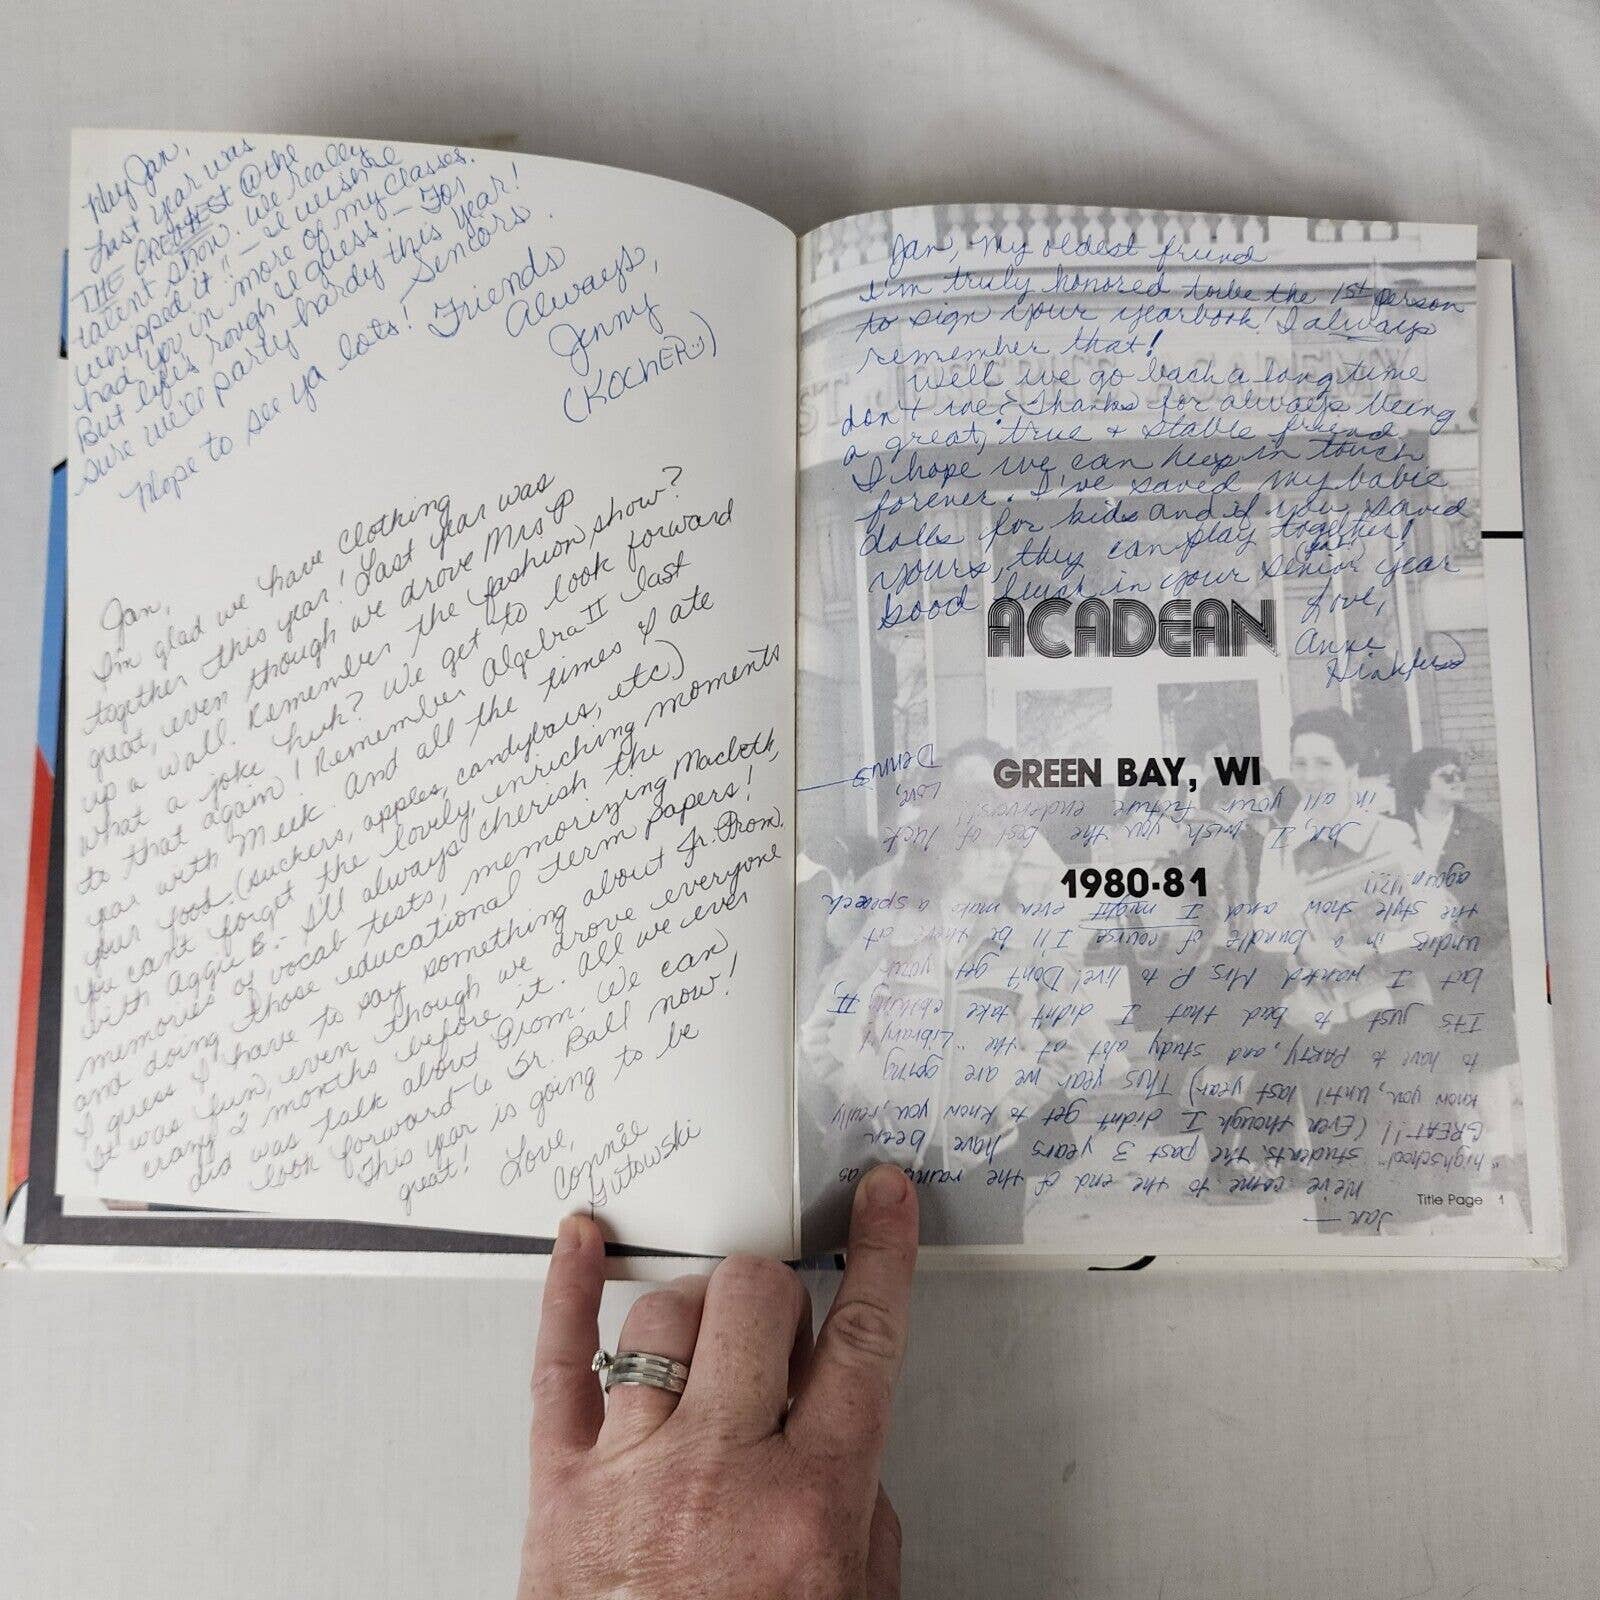 Hey Jan,
Last year was
THE GREATEST @ the
talent show. We really
whipped it!! – I wish I
had you in more of my classes.
But life's rough I guess. – For
sure we'll party hardy this year!
Hope to see ya lots! Seniors.
Friends
Always,
Jenny
(KOCHER :))
Jan,
I'm glad we have clothing
together this year! Last year was
great, even though we drove Mrs P
up a wall. Remember the fashion show?
what a joke, huh? We get to look forward
to that again! Remember Algebra II last
year with Meek. And all the times I ate
your food. (suckers, apples, candybars, etc)
You can't forget the lovely, enriching moments
with Aggie B. – I'll always cherish the
memories of vocab tests, memorizing Macbeth,
and doing those educational term papers!
I guess I have to say something about Jr. Prom.
It was fun, even though we drove everyone
crazy 2 months before it. All we ever
did was talk about Prom. We can
look forward to Sr. Ball now!
This year is going to be
great!
Love,
Connie
Gutowski
Jan, My oldest friend
I'm truly honored to be the 1st person
to sign your yearbook! I always
remember that!
Well we go back a long time
don't we? Thanks for always being
a great, true + stable friend.
I hope we can keep in touch
forever. I've saved my babie
dolls for kids and if you saved
yours, they can play together!
Good luck in your senior year
Love,
Anne
ACADEAN
GREEN BAY, WI
1980-81
Jan, I wish you the best of luck
in all your future endeavors!!
Love,
Dennis
Jan —
We've come to the end of the rainbow as
"highschool" students. The past 3 years have been
GREAT!! (Even though I didn't get to know you, really
know you, until last year) This year we are going
to have to PARTY, and study alot at the "Library"!
ITS just to bad that I didn't take II,
but I wanted Mrs P. to live! Don't get your
undies in a bundle of course I'll be there at
the style show and I might even make a speach
again!!?!!
Title Page 1